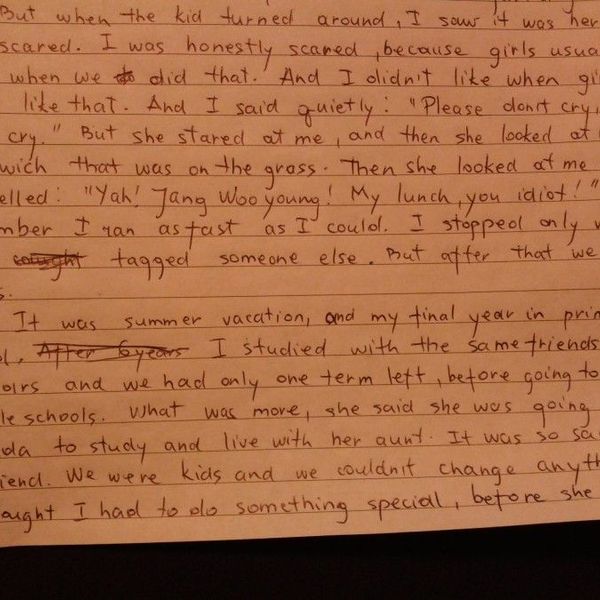 But when the kid turned around, I saw it was her
scared. I was honestly scared, because girls usua
when we did that. And I didn't like when gi
like that. And I said quietly: "Please don't cry,
cry." But she stared at me, and then she looked at
wich that was on the grass. Then she looked at me
elled: "Yah! Jang Wooyoung! My lunch, you idiot!"
mber I ran as fast as I could. I stopped only
caught tagged someone else. But after that we
s.
It was summer vacation, and my final year in prim
ol. After 6 years I studied with the same friends
airs and we had only one term left, before going to
le schools. What was more, she said she was going
da to study and live with her aunt. It was so sa
iend. We were kids and we couldn't change anyth
ought I had to do something special, before she